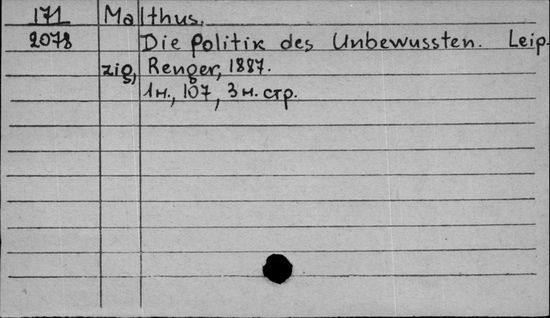 171 Malthus.
2078 Die Politik des Unbewussten. Leip-
zig, Renger, 1887.
1н., 107, 3н. стр.